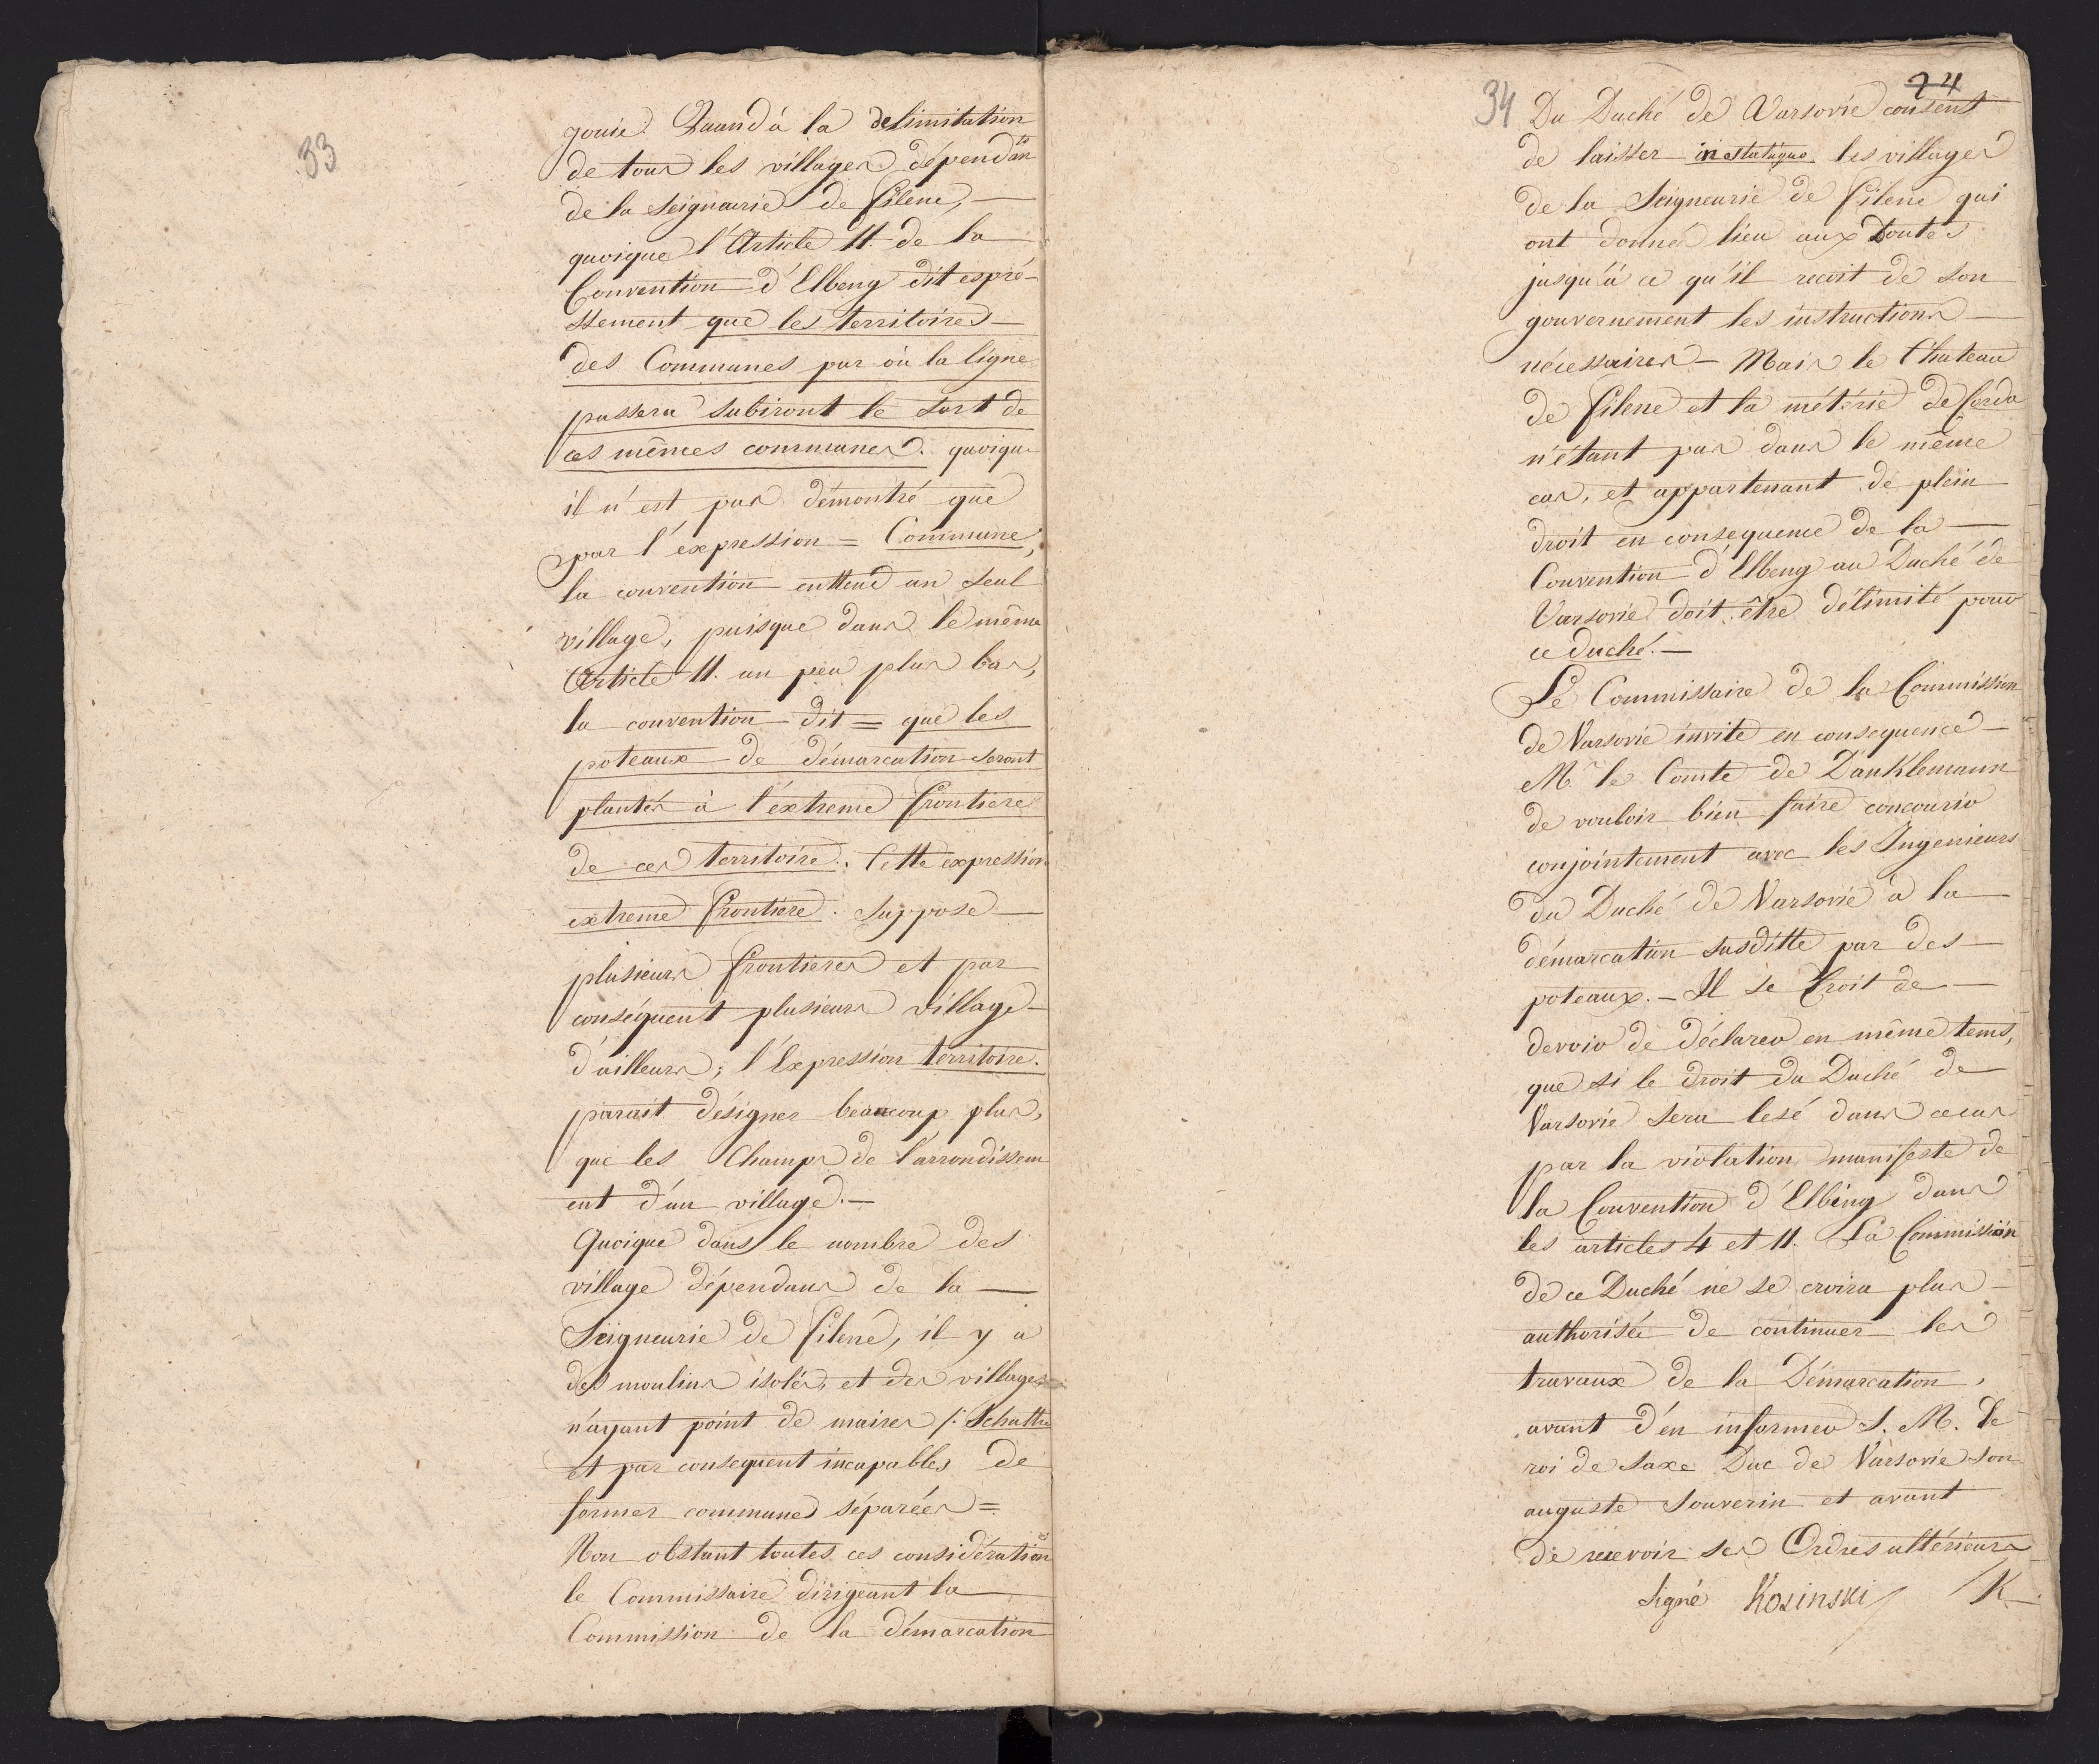 33
gouie. Quand à la delimitation
de tous les villages dépendan
ts
de la Seigneurie de Filene,
quoique l'Article 11. de la
Convention d'Elbeng dit espré-
ssement que les territoires
des Communes par où la ligne
passera subiront le sort de
ces mêmes communes. quoique
il n'est pas démontré que
par l'expression = Commune,
la convention enttend un seul
village, puisque dans le même
Article 11. un peu plus bas,
la convention dit = que les
poteaux de démarcation seront
plantés à l'éxtreme frontiere
de ces territoire. Cette expression
extreme frontiere. suppose
plusieurs frontieres et par
conséquent plusieurs village
d'ailleurs; l'expression territoire.
parait désigner beaucoup plus,
que les Champs de l'arrondissem
ent d'un village.—
Quoique dans le nombre des
village dépendans de la
Seigneurie de Filene, il y a
des moulins isolés, et des villages
n'ayant point de maires /: Schultze
et par consequent incapables de
former communes séparées =
Non obstant toutes ces considération
es
le Commissaire dirigeant la
Commission de la démarcation
34
24
Du Duché de Varsovie consent
de laisser in statuquo les villages
de la Seigneurie de Filene qui
ont donnés lieu aux Doutes
jusqu'à ce qu'il recoit de son
gouvernement les instructions
nécessaires — Mais le Chateau
de Filene et la métérie de
n'étant pas dans le même
cas, et appartenant de plein
droit en consequence de la
Convention d'Elbeng au Duché de
Varsovie doit être délimité pour
ce duché.—
Le Commissaire de la Commission
de Varsovie invite en consequence
Mr le Comte de Dankelmann
de vouloir bien faire concourir
conjointement avec les Ingenieurs
du Duché de Varsovie à la
démarcation susditte par des
poteaux.— Il se Croit de
devoir de déclarer en même tems,
que si le droit du Duché de
Varsovie sera lesé dans ce cas
par la violation manifeste de
la Convention d'Elbing dans
les articles 4 et 11. La Commission
de ce Duché ne se croira plus
authorisée de continuer les
travaux de la Démarcation,
avant d'en informer S. M. le
roi de Saxe Duc de Varsovie son
auguste Souverin et avant
de recevoir ses Ordres ultérieurs
Signé Kosinski K